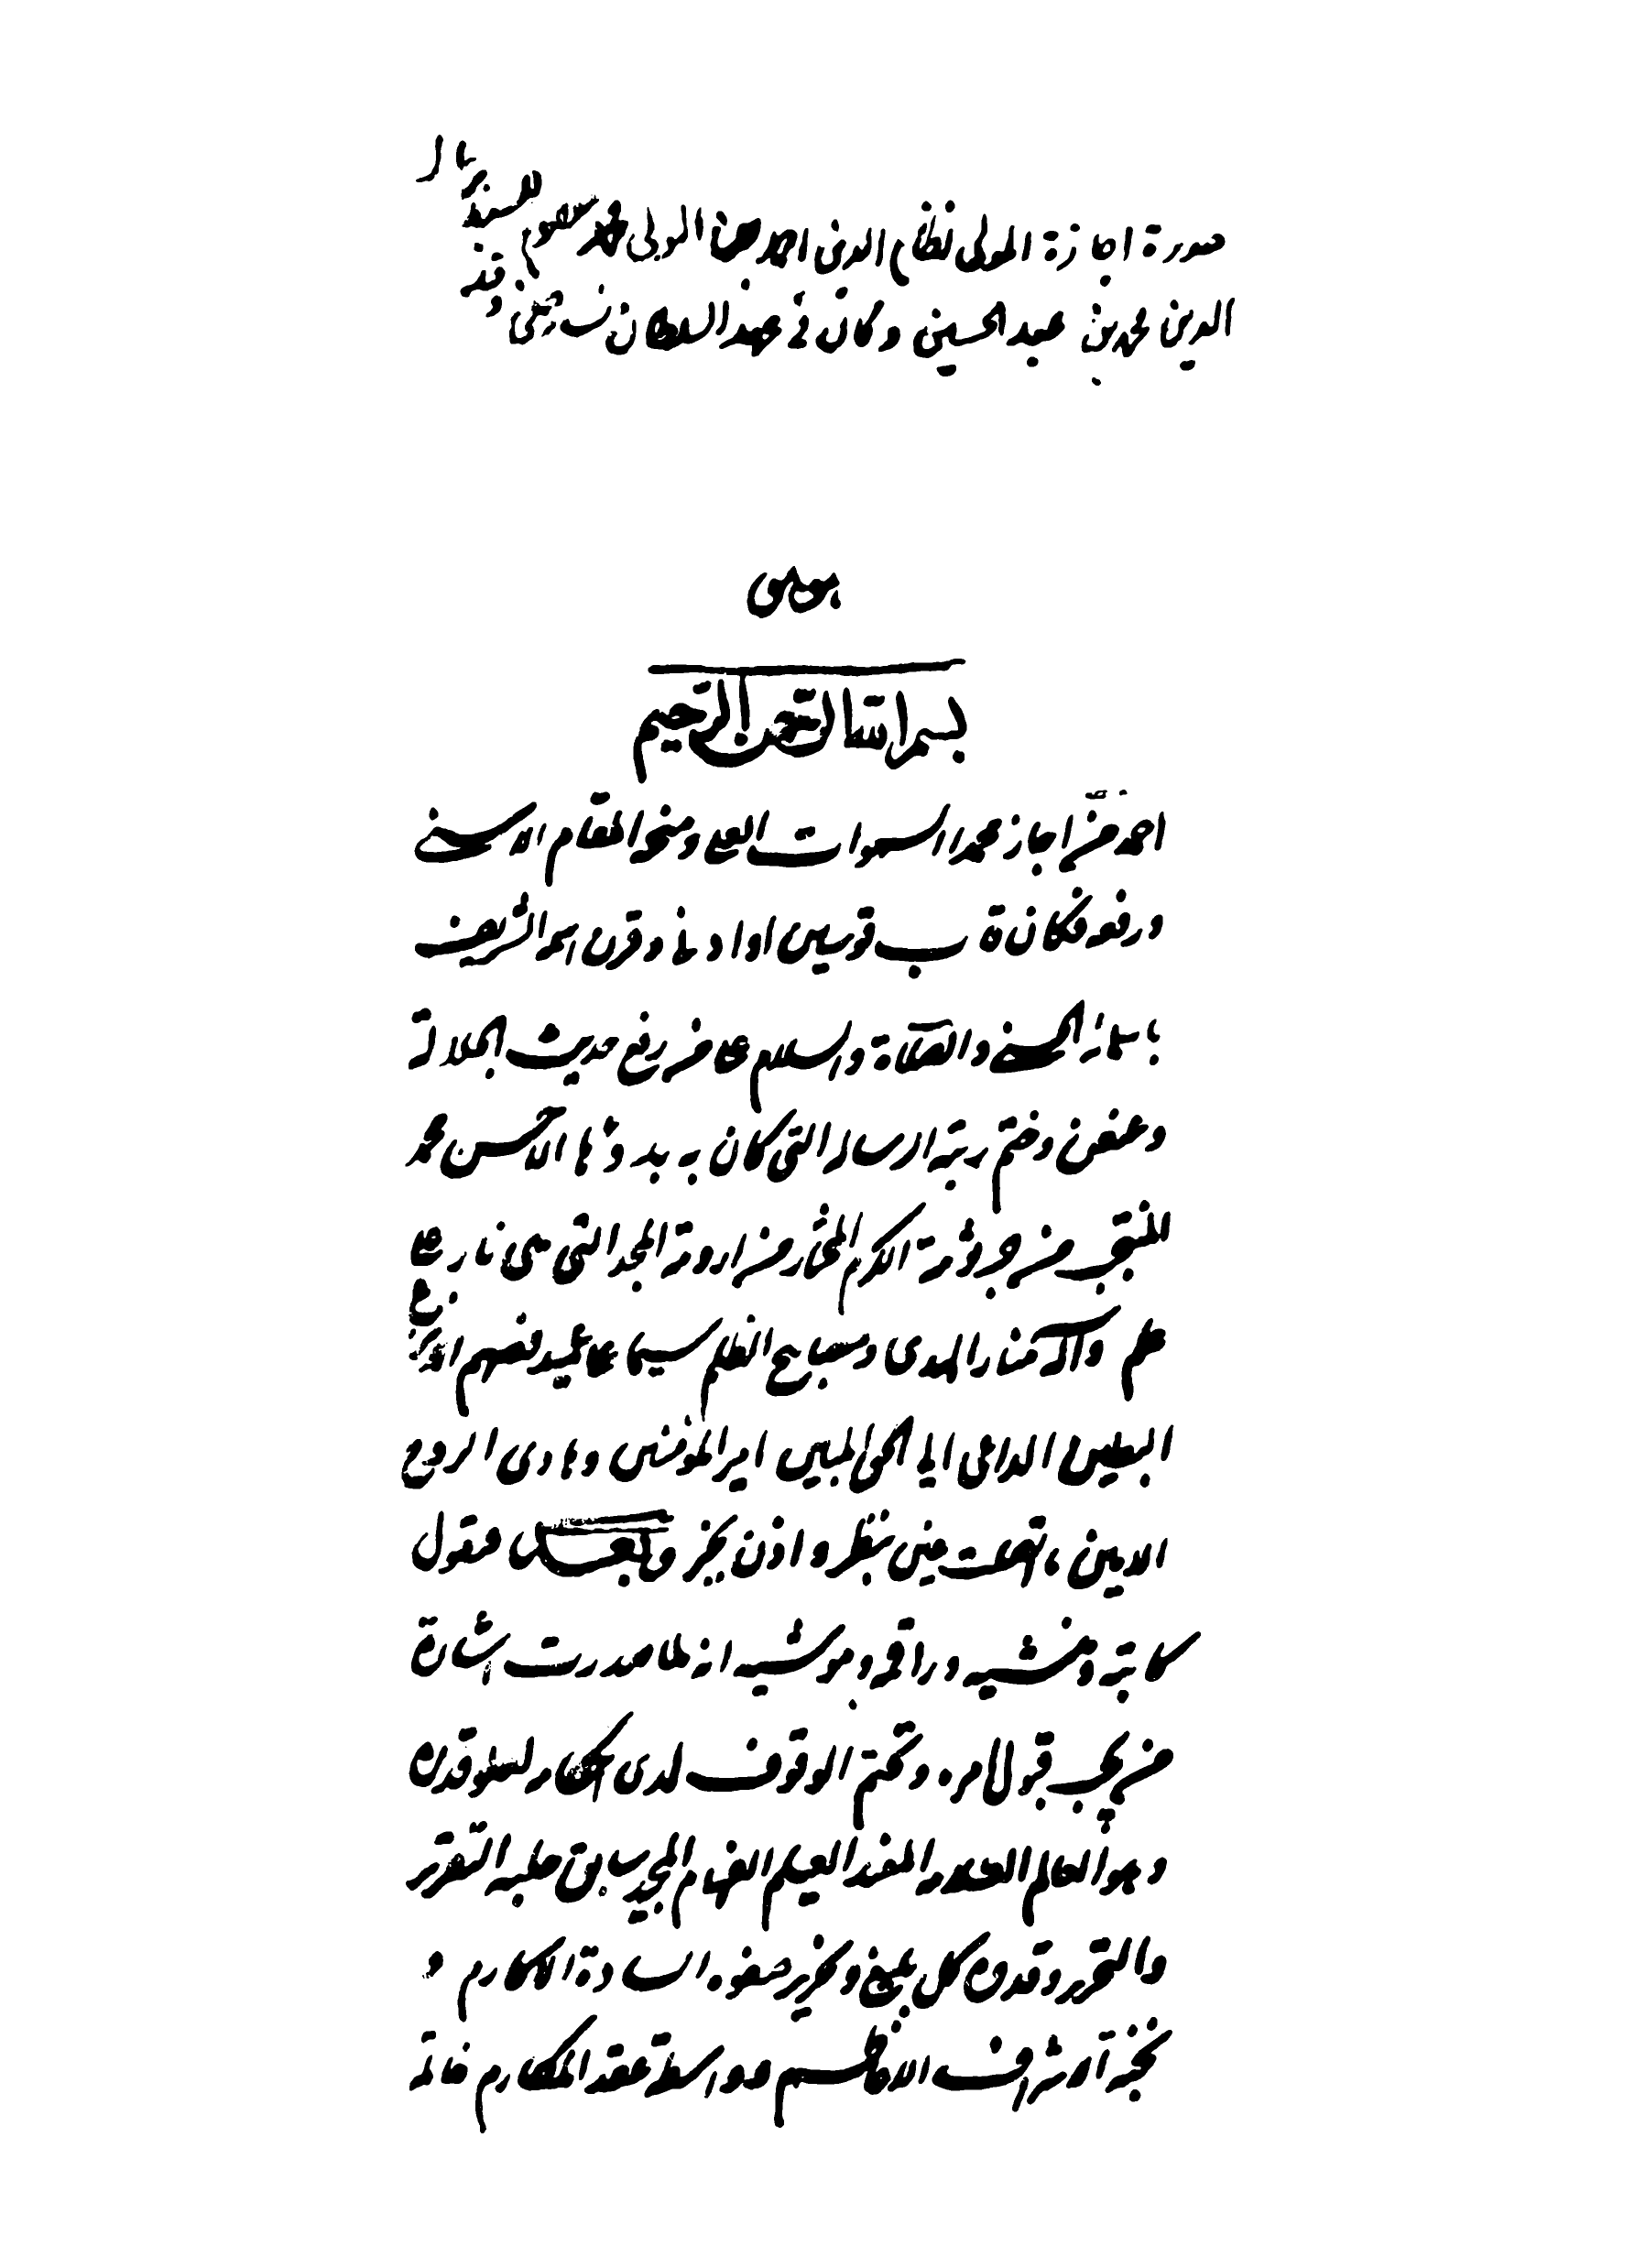 صورة اجازة المولى نظام الدين احمد بن المولى محمد معصوم للسيد
الدين محمد بن عبد الحسين وكان في عهد السلطان
بسم الله الرحمن الرحيم
احمد من اجاز محمدا السموات العلى ومنحه المقام الاسنى
ورفعه فكان قاب قوسين او ادنى وقرن اسمه الشريف
باسمائه الحسنى والصلاة والسلام على من رفع حديث الجلالة
وعنعن وختم به الرسالة التي كان به بدوها الاحسن محمد
المنتجب من جرثومة الكرم المختار من ارومة المجد التي هي نار على
علم وآله منار الهدى ومصابيح الظلم سيما على عميدهم الانزع
البطين الداعي الى الحق المبين امير المؤمنين وهادي الروح
الامين ما اتصلت عين بنظر واذن بخبر وبعد فيقول
كاتبه ومنشيه وراقمه وموشيه انه لما صدرت اشارة
من يجب قبول امره وتحتم الوقوف لدى احكامه لعلو قدره
وهو العالم العلامه المفيد العيلم الفهام المجيد سابق حلبه التقرير
والتحرير وقدوه كل بليغ ونحرير صفوه السادة الاكارم و
نخبة الاشراف الاعاظم وواسطة عقد المكارم خاتمة